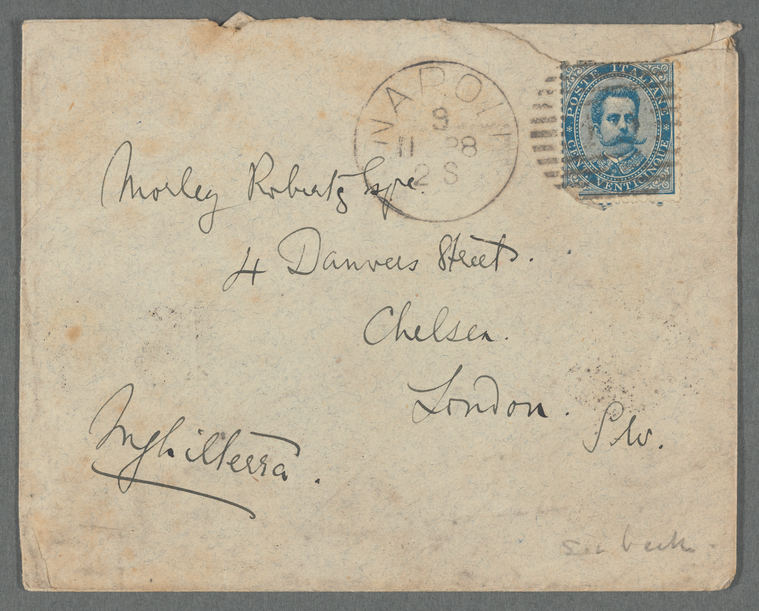 NAPOLI
9
11 88
2 S
POSTE ITALIANE
CENT. VENTICINQUE
Morley Roberts Esqre.
4 Danvers Street.
Chelsea.
London.
S.W.
Inghilterra.
See back